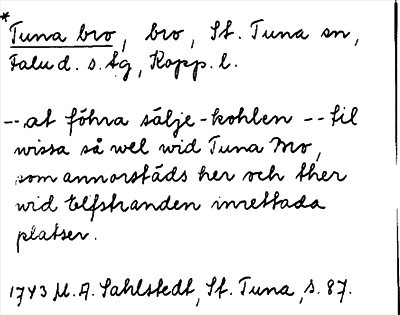 *
Tuna bro, bro, St. Tuna sn,
Falu d. s. tg, Kopp. l.
-- at föhra sälje-kohlen -- til
wissa så wel wid Tuna Mo,
som annorstäds her och ther
wid Elfstranden inrettada
platser.
1743 M. A. Sahlstedt, St. Tuna, s. 87.